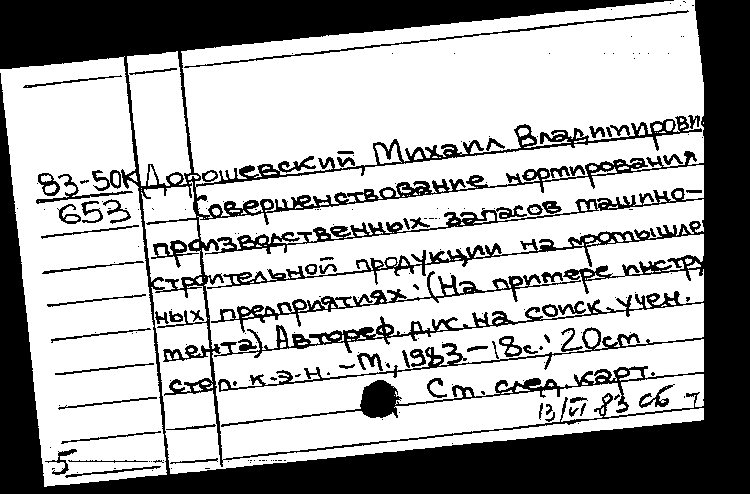 83-50К Дорошевский, Михаил Владимирови
653 Совершенствование нормирования
производственных запасов машино-
строительной продукции на промышлен
ных предприятиях: (На примере инстру
мента). Автореф. дис. на соиск. учен.
степ. к.э.н. - М., 1983. - 18с.; 20см.
См. след. карт.
13/VI 83 сб
5